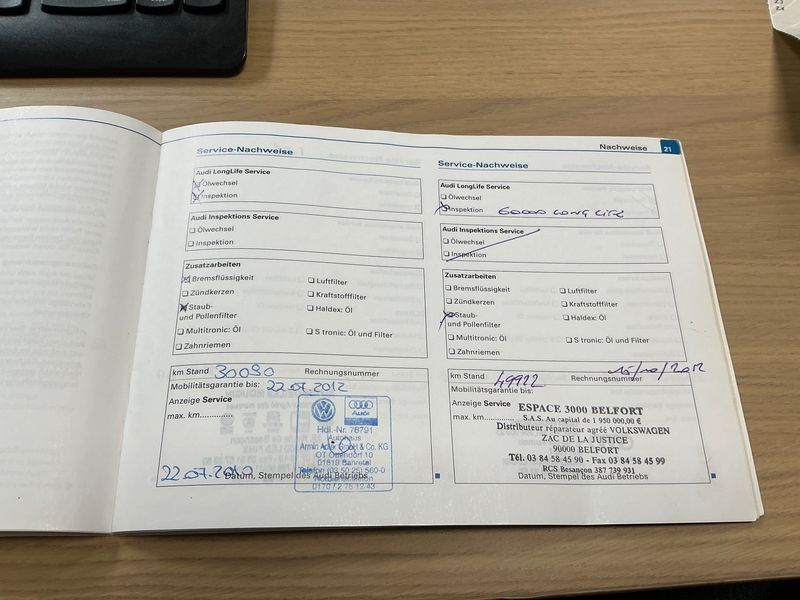 Nachweise 21
Service-Nachweise
Audi LongLife Service
Ölwechsel
Inspektion
Audi Inspektions Service
Ölwechsel
Inspektion
Zusatzarbeiten
Bremsflüssigkeit
Luftfilter
Zündkerzen
Kraftstofffilter
Staub-
und Pollenfilter
Haldex: Öl
Multitronic: Öl
S tronic: Öl und Filter
Zahnriemen
km Stand 30090 Rechnungsnummer
Mobilitätsgarantie bis: 22.07.2012
Anzeige Service
max. km.............
Audi
Hdl.-Nr. 76791
Autohaus
Armin Adler GmbH & Co. KG
OT Ottendorf 10
01819 Bahretal
Telefon (03 50 25) 560-0
0170 / 2 76 12 43
22.07.2010
Datum, Stempel des Audi Betriebs
Service-Nachweise
Audi LongLife Service
Ölwechsel
Inspektion 60000 LONG LIFE
Audi Inspektions Service
Ölwechsel
Inspektion
Zusatzarbeiten
Bremsflüssigkeit
Luftfilter
Zündkerzen
Kraftstofffilter
Staub-
und Pollenfilter
Haldex: Öl
Multitronic: Öl
S tronic: Öl und Filter
Zahnriemen
km Stand 49922 Rechnungsnummer 15/10/2012
Mobilitätsgarantie bis:
Anzeige Service
max. km.............
ESPACE 3000 BELFORT
S.A.S. Au capital de 1 950 000,00 €
Distributeur réparateur agréé VOLKSWAGEN
ZAC DE LA JUSTICE
90000 BELFORT
Tél. 03 84 58 45 90 - Fax 03 84 58 45 99
RCS Besançon 387 739 931
Datum, Stempel des Audi Betriebs